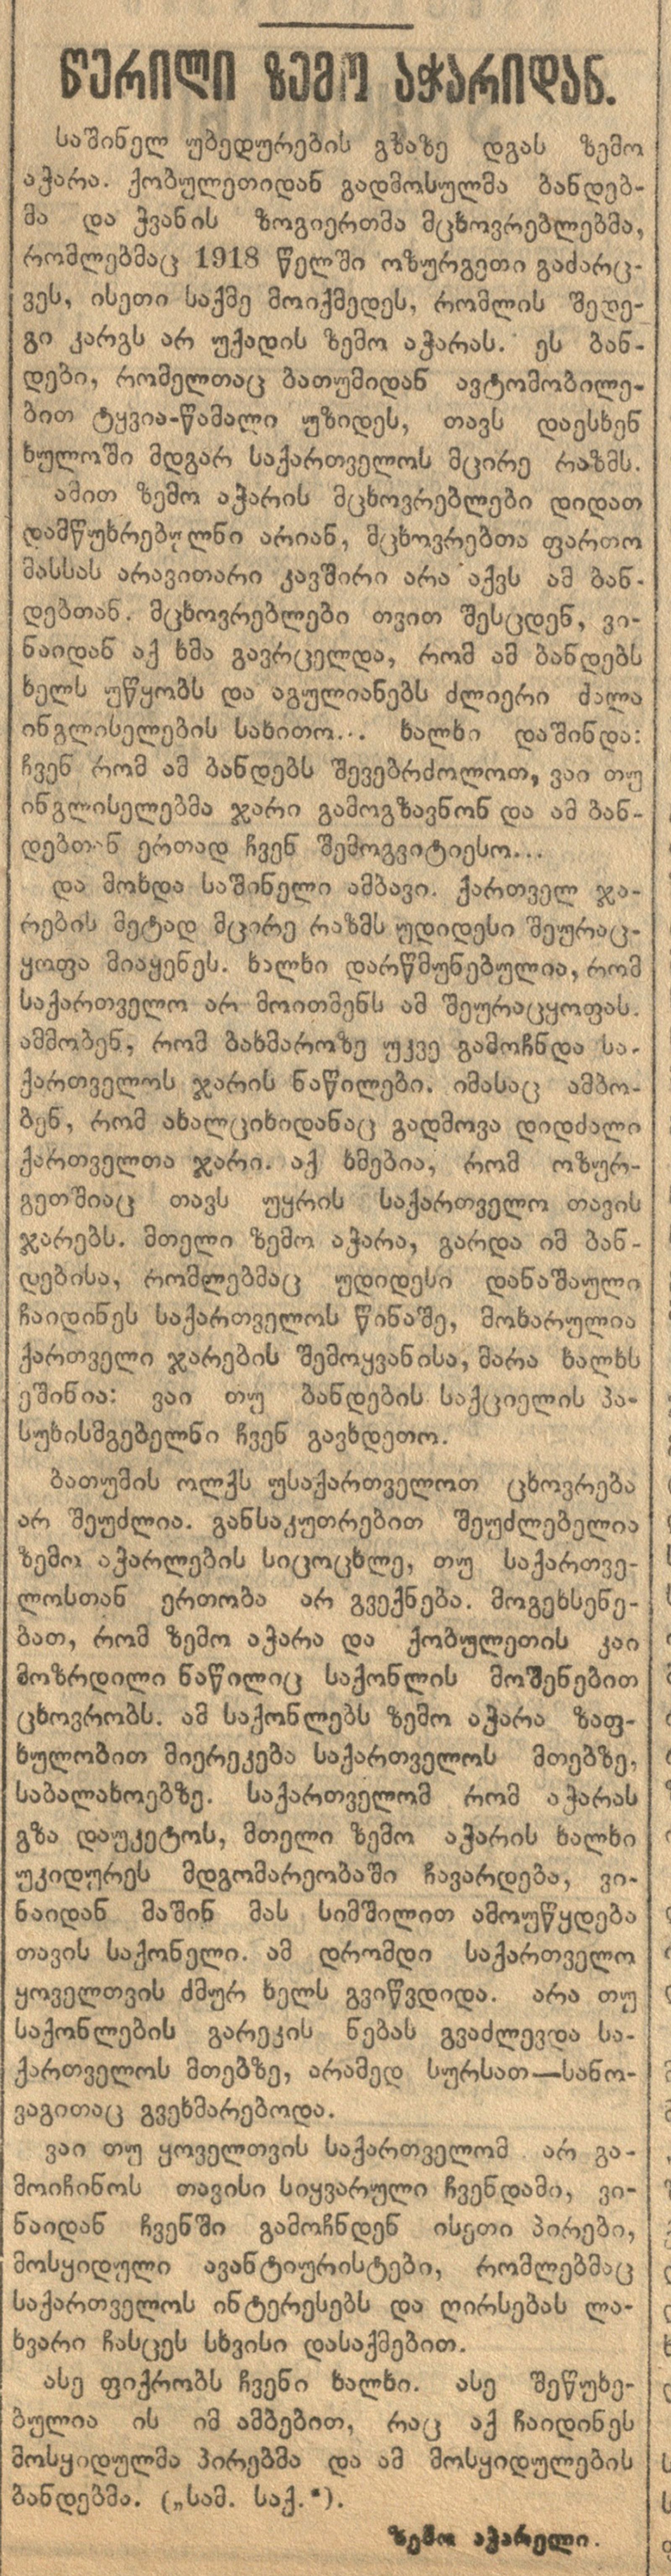 წერილი ზემო აჭარიდან.
საშინელ უბედურების გზაზე დგას ზემო
აჭარა. ქობულეთიდან გადმოსულმა ბანდებ-
მა და ჭვანის ზოგიერთმა მცხოვრებლებმა,
რომლებმაც 1918 წელში ოზურგეთი გაძარც-
ვეს, ისეთი საქმე მოიქმედეს, რომლის შედე-
გი კარგს არ უქადის ზემო აჭარას. ეს ბან-
დები, რომელთაც ბათუმიდან ავტომობილე-
ბით ტყვია-წამალი უზიდეს, თავს დაესხენ
ხულოში მდგარ საქართველოს მცირე რაზმს.
ამით ზემო აჭარის მცხოვრებლები დიდათ
დამწუხრებულნი არიან, მცხოვრებთა ფართო
მასსას არავითარი კავშირი არა აქვს ამ ბან-
დებთან. მცხოვრებლები თვით შესცდენ, ვი-
ნაიდან აქ ხმა გავრცელდა, რომ ამ ბანდებს
ხელს უწყობს და აგულიანებს ძლიერი ძალა
ინგლისელების სახითო... ხალხი დაშინდა:
ჩვენ რომ ამ ბანდებს შევებრძოლოთ, ვაი თუ
ინგლისელებმა ჯარი გამოგზავნონ და ამ ბან-
დებთან ერთად ჩვენ შემოგვიტიესო...
და მოხდა საშინელი ამბავი. ქართველ ჯა-
რების მეტად მცირე რაზმს უდიდესი შეურაც-
ყოფა მიაყენეს. ხალხი დარწმუნებულია, რომ
საქართველო არ მოითმენს ამ შეურაცყოფას.
ამმობენ, რომ ბახმაროზე უკვე გამოჩნდა სა-
ქართველოს ჯარის ნაწილები. იმასაც ამბო-
ბენ, რომ ახალციხიდანაც გადმოვა დიდძალი
ქართველთა ჯარი. აქ ხმებია, რომ ოზურ-
გეთშიაც თავს უყრის საქართველო თავის
ჯარებს. მთელი ზემო აჭარა, გარდა იმ ბან-
დებისა, რომლებმაც უდიდესი დანაშაული
ჩაიდინეს საქართველოს წინაშე, მოხარულია
ქართველი ჯარების შემოყვანისა, მარა ხალხს
ეშინია: ვაი თუ ბანდების საქციელის პა-
სუხისმგებელნი ჩვენ გავხდეთო.
ბათუმის ოლქს უსაქართველოთ ცხოვრება
არ შეუძლია. განსაკუთრებით შეუძლებელია
ზემო აჭარლების სიცოცხლე, თუ საქართვე-
ლოსთან ერთობა არ გვექნება. მოგეხსენე-
ბათ, რომ ზემო აჭარა და ქობულეთის კაი
მოზრდილი ნაწილიც საქონლის მოშენებით
ცხოვრობს. ამ საქონლებს ზემო აჭარა ზაფ-
ხულობით მიერეკება საქართველოს მთებზე,
საბალახოებზე. საქართველომ რომ აჭარას
გზა დაუკეტოს, მთელი ზემო აჭარის ხალხი
უკიდურეს მდგომარეობაში ჩავარდება, ვი-
ნაიდან მაშინ მას სიმშილით ამოუწყდება
თავის საქონელი. ამ დრომდი საქართველო
ყოველთვის ძმურ ხელს გვიწვდიდა. არა თუ
საქონლების გარეკის ნებას გვაძლევდა სა-
ქართველოს მთებზე, არამედ სურსათ—სანო-
ვაგითაც გვეხმარებოდა.
ვაი თუ ყოველთვის საქართველომ არ გა-
მოიჩინოს თავისი სიყვარული ჩვენდამი, ვი-
ნაიდან ჩვენში გამოჩნდენ ისეთი პირები,
მოსყიდული ავანტიურისტები, რომლებმაც
საქართველოს ინტერესებს და ღირსებას ლა-
ხვარი ჩასცეს სხვისი დასაქმებით.
ასე ფიქრობს ჩვენი ხალხი. ასე შეწუხე-
ბულია ის იმ ამბებით, რაც აქ ჩაიდინეს
მოსყიდულმა პირებმა და ამ მოსყიდულების
ბანდებმა. („სამ. საქ.“).
ზემო აჭარელი.